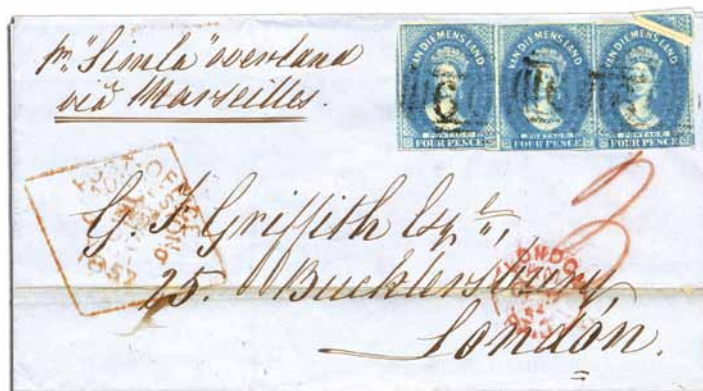 pr. "Simla" overland
via Marseilles.
VAN DIEMENS LAND
POSTAGE
FOUR PENCE
VAN DIEMENS LAND
POSTAGE
FOUR PENCE
VAN DIEMENS LAND
POSTAGE
FOUR PENCE
G. F. Griffith Esqre,
25. Bucklersbury
London.
LONDON
PAID